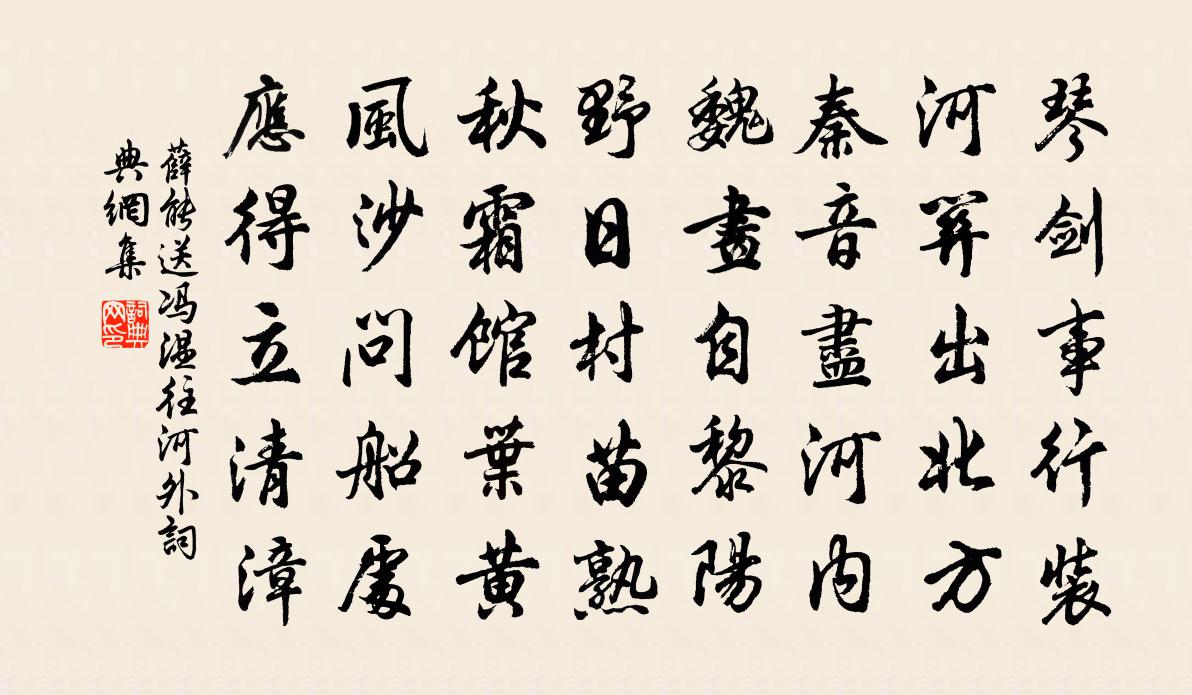 琴剑事行裝
河關出北方
秦音盡河內
魏畫自黎陽
野日村苗熟
秋霜館葉黃
風沙問船處
應得立清漳
薛能送冯温往河外詞
典網集
詞典网印